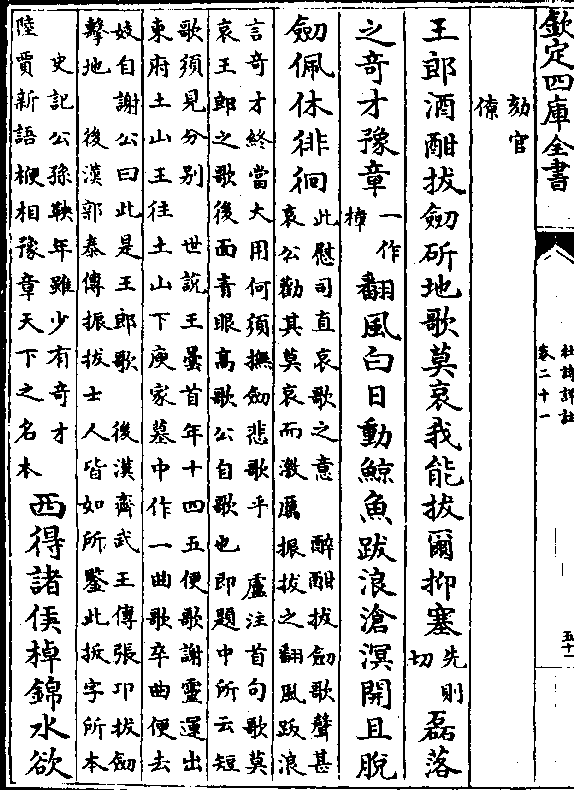 欽定四庫全書
杜詩詳註
卷二十一
五十一
劾官
僚
王郎酒酣拔劒斫地歌莫哀我能拔爾抑塞
先則
切
磊落
之奇才豫章
一作
樟
翻風白日動鯨魚跋浪滄溟開且脫
劒佩休徘徊
此慰司直哀歌之意 醉酣拔劒歌聲甚
哀公勸其莫哀而激厲振拔之翻風跋浪
言奇才終當大用何須撫劒悲歌乎 盧注首句歌莫
哀王郎之歌後面青眼高歌公自歌也即題中所云短
歌須見分别 世說王曇首年十四五便歌謝靈運出
東府土山王往土山下庾家墓中作一曲歌卒曲便去
妓自謝公曰此是王郎歌 後漢齊武王傳張卬拔劒
擊地 後漢郭泰傳振拔士人皆如所鑒此拔字所本
史記公孫鞅年雖少有奇才
陸賈新語楩相豫章天下之名本
西得諸侯棹錦水欲